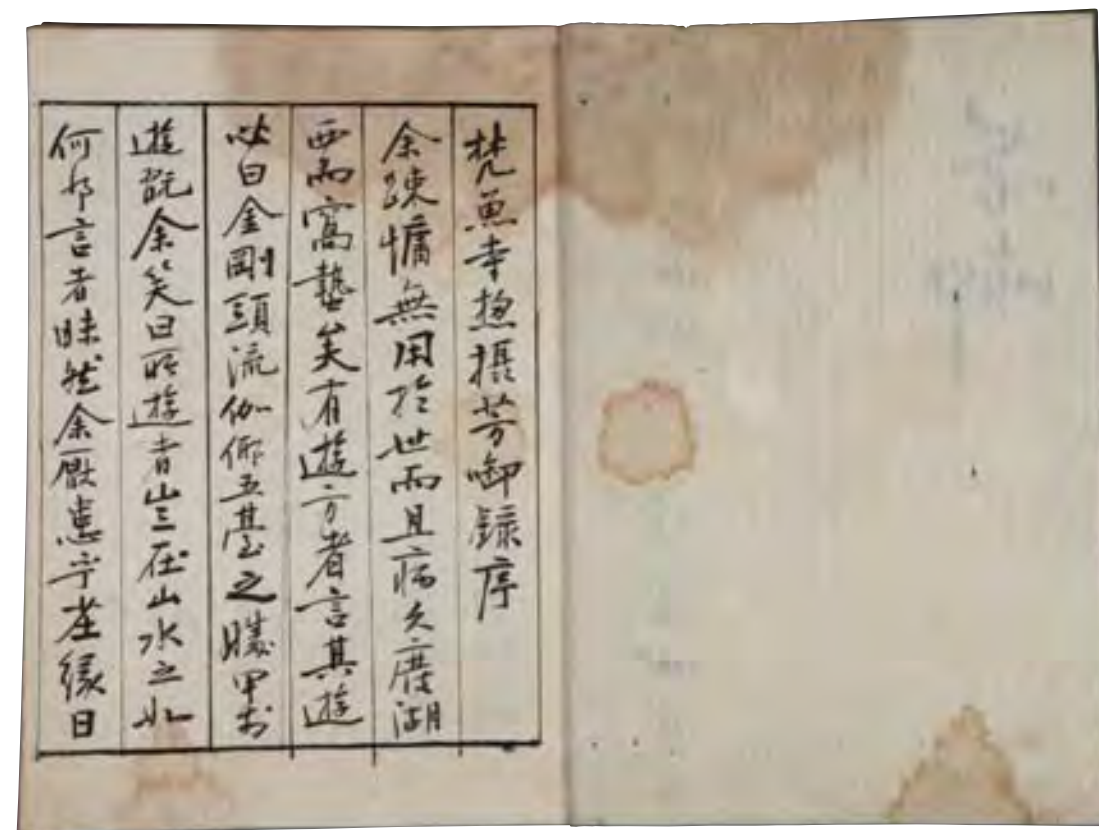 梵魚寺摠攝芳啣錄序
余疎慵無用於世而且病久廢湖
西而窩蟄矣有遊方者言其遊
必曰金剛頭流伽倻五臺之勝甲於
遊說余笑曰所遊者山豈在山水之
何那言者昧然余厰惠宇莝緣日